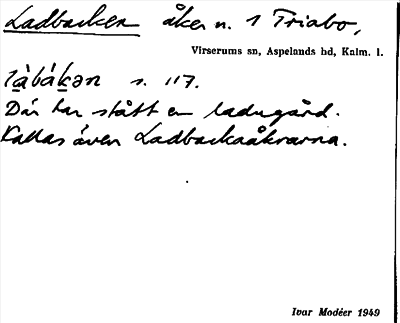 Ladbacken åker n. 1 Triabo,
Virserums sn, Aspelands hd, Kalm. l.
s. 117.
Där har stått en ladugård.
Kallas även Ladbackaåkrarna.
Ivar Modéer 1949